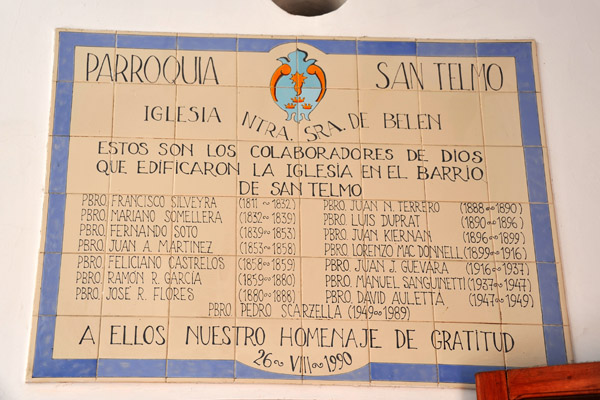 PARROQUIA SAN TELMO
IGLESIA NTRA. SRA. DE BELEN
ESTOS SON LOS COLABORADORES DE DIOS
QUE EDIFICARON LA IGLESIA EN EL BARRIO
DE SAN TELMO
PBRO. FRANCISCO SILVEYRA (1811 ~ 1832)
PBRO. MARIANO SOMELLERA (1832 ~ 1839)
PBRO. FERNANDO SOTO (1839 ~ 1853)
PBRO. JUAN A. MARTINEZ (1853 ~ 1858)
PBRO. FELICIANO CASTRELOS (1858 ~ 1859)
PBRO. RAMÓN R. GARCÍA (1859 ~ 1880)
PBRO. JOSÉ R. FLORES (1880 ~ 1888)
PBRO. JUAN N. TERRERO (1888 ~ 1890)
PBRO. LUIS DUPRAT (1890 ~ 1896)
PBRO. JUAN KIERNAN (1896 ~ 1899)
PBRO. LORENZO MAC DONNELL (1899 ~ 1916)
PBRO. JUAN J. GUEVARA (1916 ~ 1937)
PBRO. MANUEL SANGUINETTI (1937 ~ 1947)
PBRO. DAVID AULETTA (1947 ~ 1949)
PBRO. PEDRO SCARZELLA (1949 ~ 1989)
A ELLOS NUESTRO HOMENAJE DE GRATITUD
26 ~ VIII ~ 1990